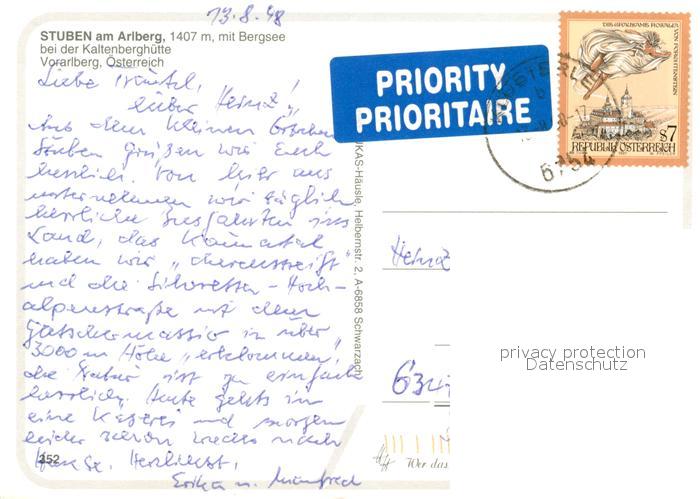 13.8.98
STUBEN am Arlberg, 1407 m, mit Bergsee
bei der Kaltenberghütte
Vorarlberg, Österreich
Liebe Träutel,
lieber Heinz!
Aus dem kleinen Örtchen
Stuben grüßen wir Euch
herzlich. Von hier aus
unternehmen wir täglich
herrliche Busfahrten ins
Land, das
haben wir "durchstreift"
und die Silvretta-Hoch-
alpenstraße mit dem
Gletschermassiv in über
3000 m Höhe "erklommen".
die Natur ist zu einfach
herrlich. Heute gehts in
eine Käserei und morgen
leider schon wieder nach
Hause. Herzlichst,
Erika u. Manfred
352
KAS-Häusle, Helbernstr. 2, A-6858 Schwarzach
PRIORITY
PRIORITAIRE
DIE GRAUSAME ROSALIA
VON FORCHTENSTEIN
S7
REPUBLIK ÖSTERREICH
6754
Heinz
634
privacy protection
Datenschutz
Wer das